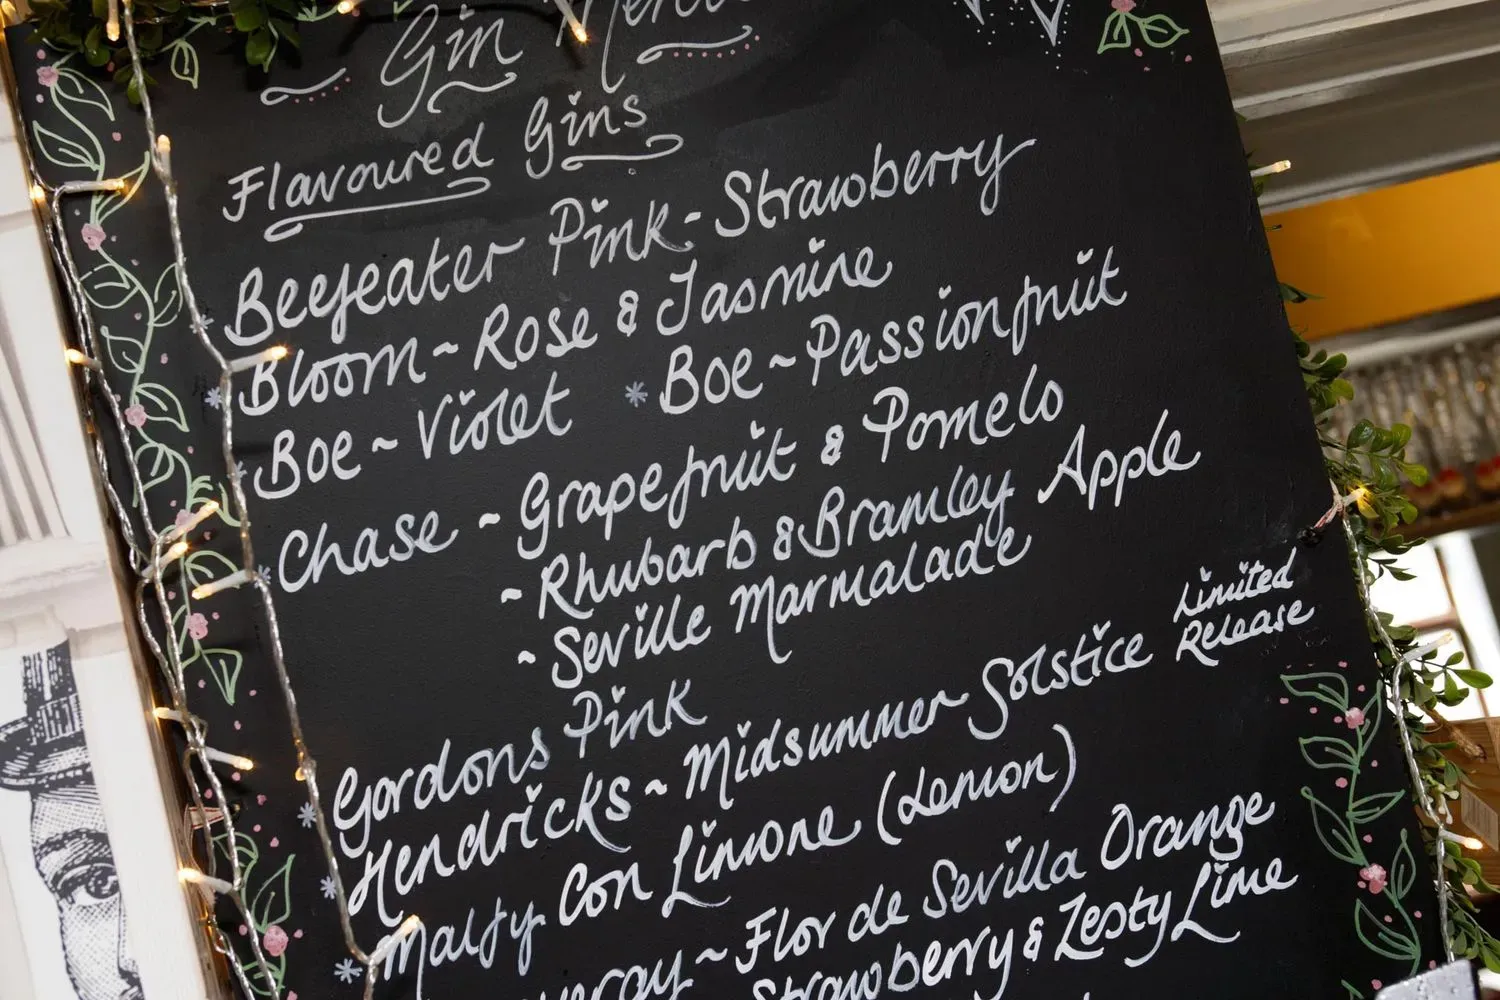 Gin Menu
Flavoured Gins
Beefeater Pink - Strawberry
* Bloom ~ Rose & Jasmine
* Boe ~ Violet * Boe ~ Passionfruit
* Chase ~ Grapefruit & Pomelo
~ Rhubarb & Bramley Apple
~ Seville Marmalade
Gordons Pink
* Hendricks ~ Midsummer Solstice Limited Release
* Malfy Con Limone (Lemon)
* ~ Flor de Sevilla Orange
Strawberry & Zesty Lime